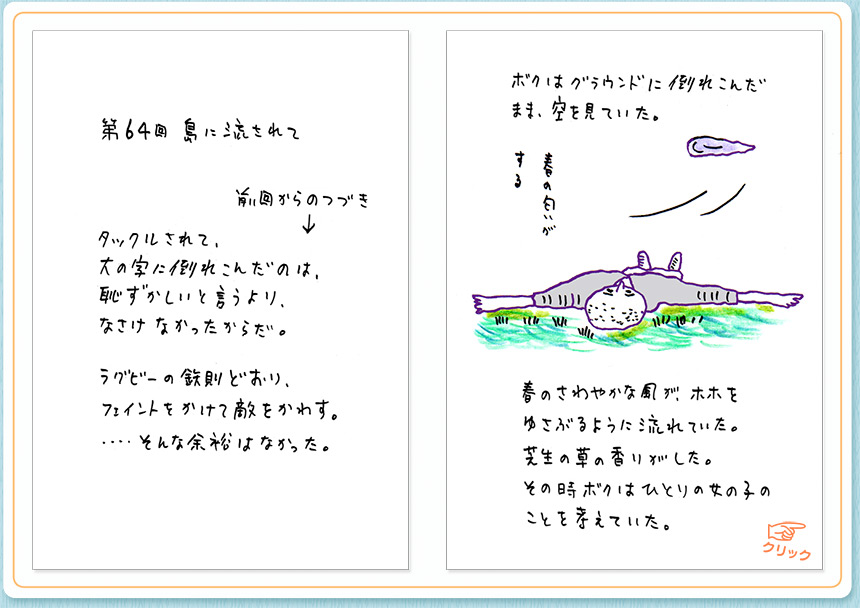 第64回 島に流されて
前回からのつづき
↓
タックルされて、
大の字に倒れこんだのは、
恥ずかしいと言うより、
なさけなかったからだ。
ラグビーの鉄則どおり、
フェイントをかけて敵をかわす。
‥‥そんな余裕はなかった。
ボクはグラウンドに倒れこんだ
まま、空を見ていた。
春の匂いが
する
春のさわやかな風が、ホホを
ゆさぶるように流れていた。
芝生の草の香りがした。
その時ボクはひとりの女の子の
ことを考えていた。
クリック